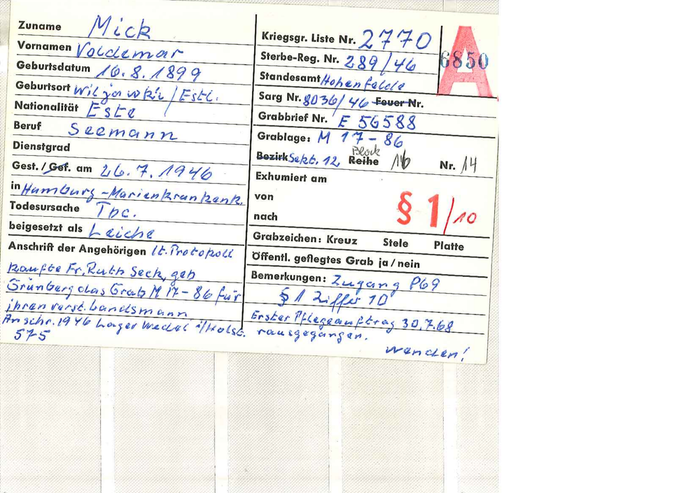 Zuname Mick
Vornamen Voldemar
Geburtsdatum 16.8.1899
Geburtsort Wiljavski / Estl.
Nationalität Este
Beruf Seemann
Dienstgrad
Gest./Gef. am 26.7.1946
in Hamburg-Marienkrankenh.
Todesursache Tbc.
beigesetzt als Leiche
Anschrift der Angehörigen lt. Protokoll
kaufte Fr. Ruth Seck, geb
Grünberg das Grab M 17-86 für
ihren verst. Landsmann
Anschr. 1946 Lager Wedel i/Holst.
575
Kriegsgr. Liste Nr. 2770
Sterbe-Reg. Nr. 289/46
Standesamt Hohenfelde
Sarg Nr. 8036/46 Feuer Nr.
Grabbrief Nr. E 56588
Grablage: M 17-86
Bezirk Sekt. 12, Block Reihe 16 Nr. 14
Exhumiert am
von
nach
§ 1/10
Grabzeichen: Kreuz Stele Platte
Öffentl. gepflegtes Grab ja/nein
Bemerkungen: Zugang P69
§ 1 Ziffer 10
Erster Pflegeauftrag 30.7.68
rausgegangen.
wenden!
A
6850